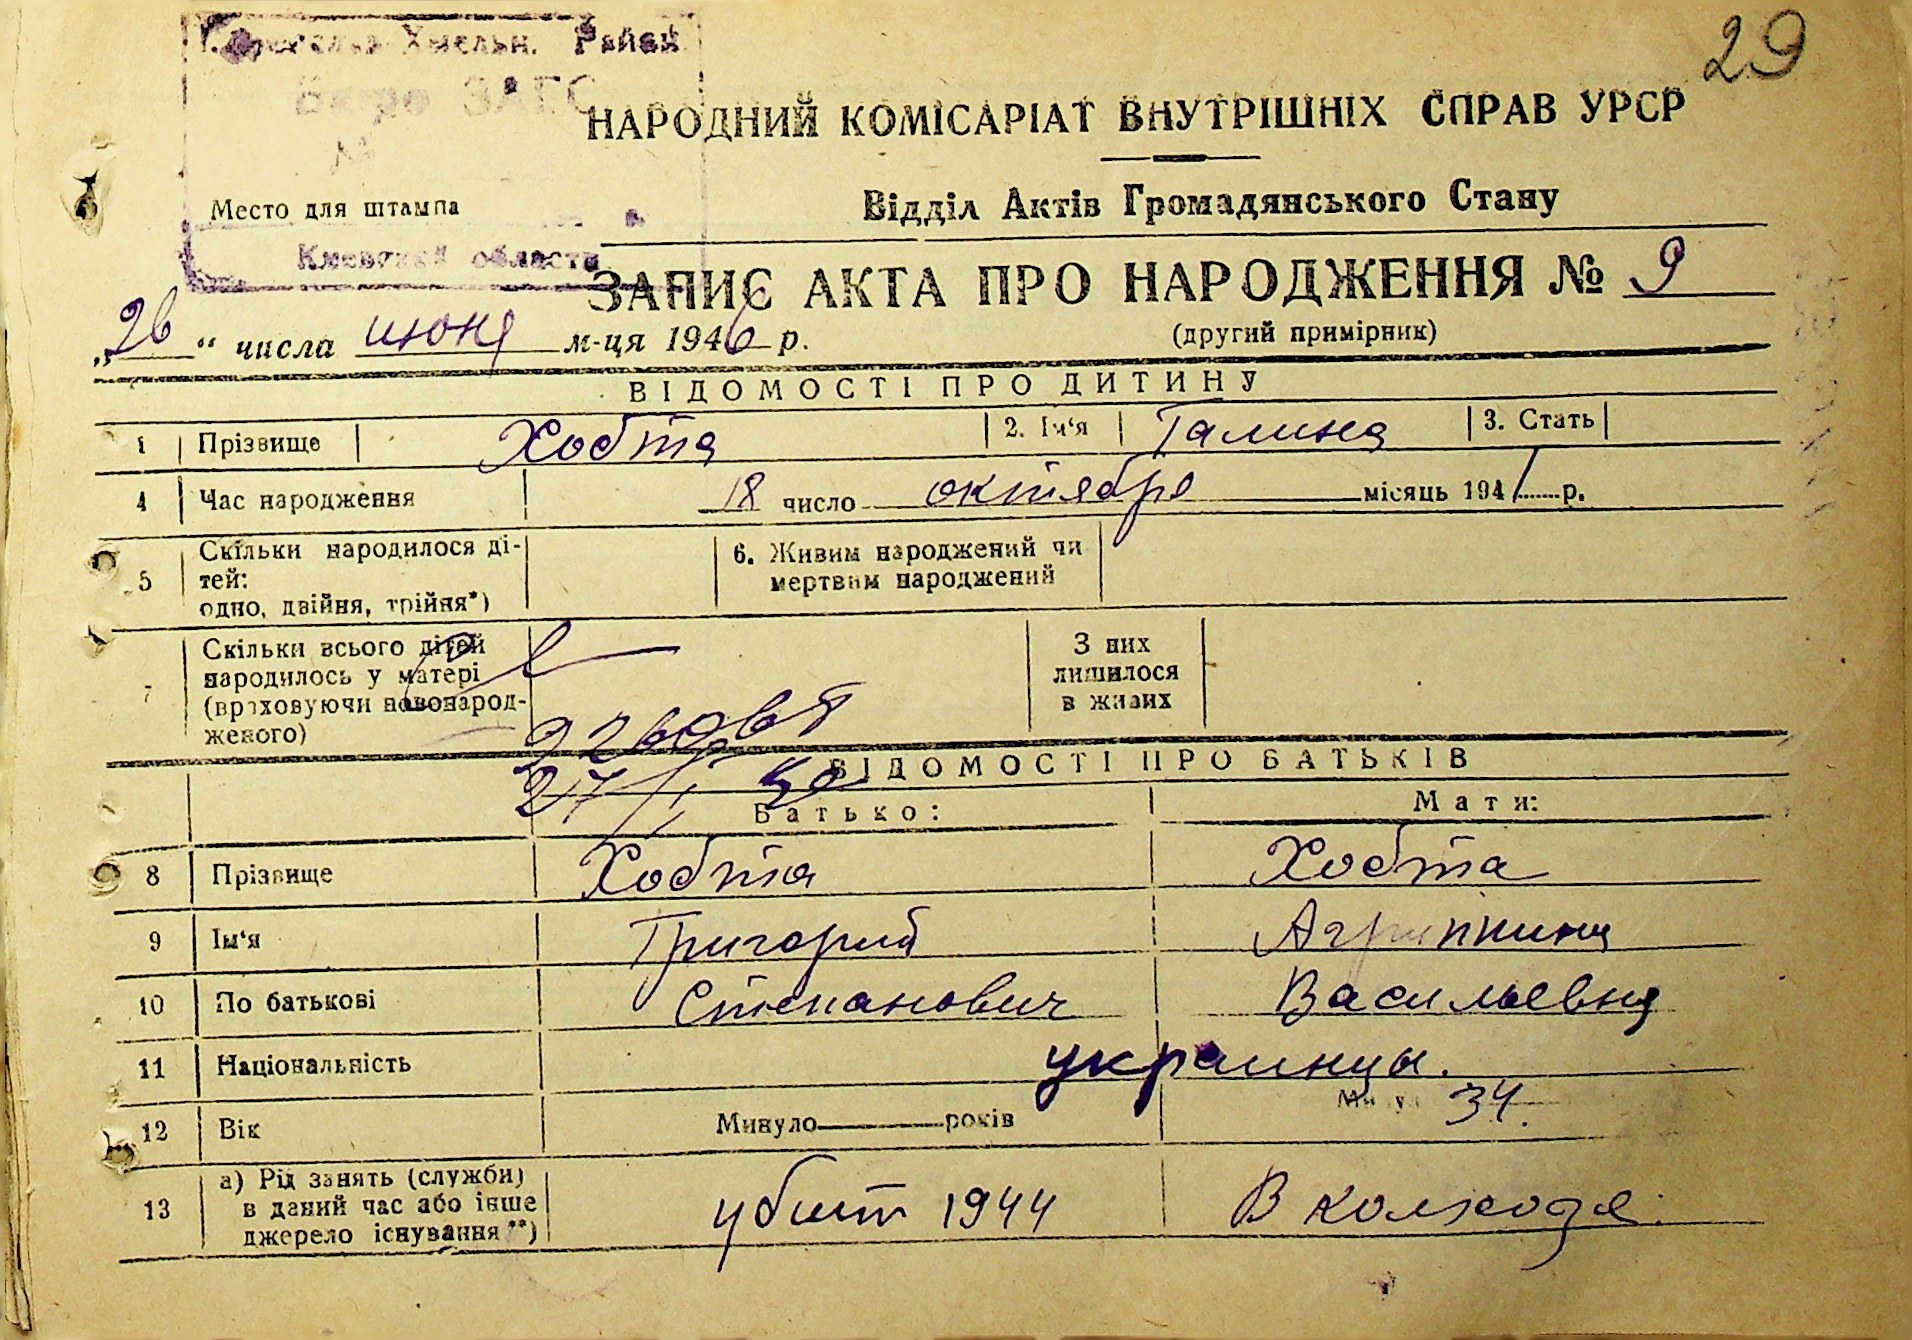 29
Хмельн. Район
Бюро ЗАГС
НАРОДНИЙ КОМІСАРІАТ ВНУТРІШНІХ СПРАВ УРСР
Место для штампа
Відділ Актів Громадянського Стану
Киевской области
ЗАПИС АКТА ПРО НАРОДЖЕННЯ № 9
(другий примірник)
„26“ числа июня м-ця 1946 р.
ВІДОМОСТІ ПРО ДИТИНУ
1 Прізвище Хобта 2. Ім‘я Галина 3. Стать
4 Час народження 18 число октября місяць 1941 р.
5 Скільки народилося ді-
тей:
одно, двійня, трійня*)
6. Живим народжений чи
мертвим народжений
7 Скільки всього дітей
народилось у матері
(враховуючи новонарод-
женого)
З них
лишилося
в живих
ВІДОМОСТІ ПРО БАТЬКІВ
Батько: Мати:
8 Прізвище Хобта Хобта
9 Ім‘я Григорий Агриппина
10 По батькові Степанович Васильевна
11 Національність украинцы.
12 Вік Минуло років 34.
13 а) Рід занять (служби)
в даний час або інше
джерело існування**)
убит 1944 В колхозе.